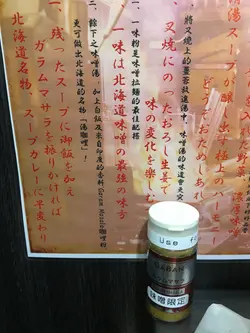 湯スープが醸し出す極上のハーモニー
どうぞおためしあれ
將叉燒上的薑蓉放進湯中，味噌湯的味道會更突
一、叉焼にのったおろし生姜で
味の変化を楽しむ
一、一味粉是味噌拉麵的最佳配搭
一味は北海道味噌の最強の味方
二、餘下之味噌湯，加上白飯及來自伊庋的香料Garam Masala咖哩粉
更可做出北海道的名物「湯咖哩」！
一、残ったスープに御飯を加え
ガラムマサラを振りかければ
北海道名物、スープカレーに早変わり
Use
GABAN
味噌限定